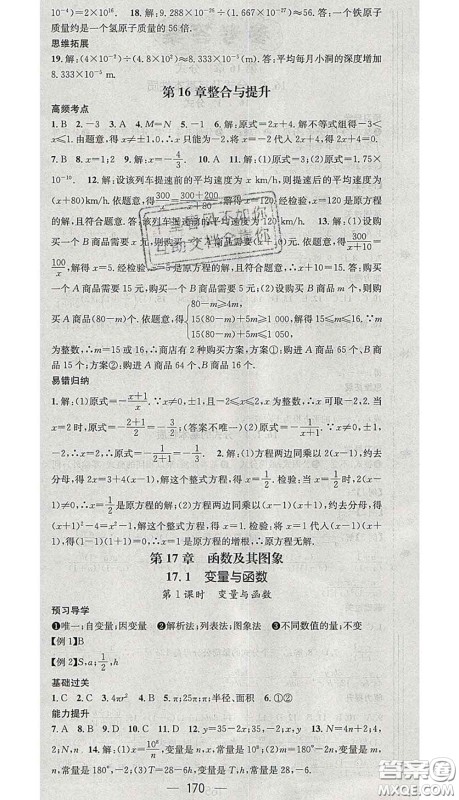 10⁻²⁴)=2×10¹⁶.  18. 解: 9.288×10⁻²⁶÷(1.67×10⁻²⁷)≈56. 答:一个铁原子
质量约是一个氢原子质量的 56 倍.
思维拓展
19. 解:(4×10⁻²)÷(4.8×10²)≈8.333×10⁻⁵(m). 答:平均每月小洞的深度增加
8.333×10⁻⁵ m.
第 16 章整合与提升
高频考点
1. B  2. −3  3. A  4. M=N  5. −1  6. 解:原式=2x+4. 解不等式组得−3<
x<4. 由题意,得 x≠±1,0. ∴x 只能为−2,将 x=−2 代入 2x+4,得原式=0.
7. B  8. x=1;2  9. 解:x=−4/3.  10. A  11. 解:(1)原式=3;(2)原式=1.75×
10⁻¹⁰.  12. 解:设该列车提速前的平均速度为 x km/h,则提速后的平均速度为
(x+80)km/h. 依题意,得300/x=(300+200)/(x+80),解得 x=120. 经检验,x=120 是原方程
的解,且符合题意. 答:该列车提速前的平均速度为 120 km/h.  13. 解:(1)设购
买一个 B 商品需要 x 元,则购买一个 A 商品需要(x+10)元. 依题意,得300/(x+10)=
100/x,解得 x=5. 经检验,x=5 是原方程的解,且符合题意,∴x+10=15. 答:购买
一个 A 商品需要 15 元,购买一个 B 商品需要 5 元;(2)设购买 B 商品 m 个,则购
买 A 商品(80−m)个. 依题意,得{80−m≥4m, 15(80−m)+5m≥1 000, 15(80−m)+5m≤1 050, 解得 15≤m≤16. ∵m
为整数,∴m=15 或 16. ∴商店有 2 种购买方案,方案①:购进 A 商品 65 个、B 商
品 15 个;方案②:购进 A 商品 64 个、B 商品 16 个.
易错归纳
1. 解:(1)原式=−(x+1)/x;(2)∵−2≤x≤2,x 为整数,∴x 可取−2,2. 当
x=2时,原式=−(2+1)/2=−3/2;(答案不唯一)(2)原式=1/(x−1). 当 x=−2 时,原
式=1/(−2−1)=−1/3;(答案不唯一)  2. 解:(1)方程两边同乘以 2(2x−1),约去
分母,得 2=2x−1−3. 解这个整式方程,得 x=3. 检验:把 x=3 代入 2(2x−1),得
2(2×3−1)≠0,∴x=1/2是原方程的解;(2)方程两边同乘以(x+1)(x−1),约去分母,得
(x+1)²−4=x²−1. 解这个整式方程,得 x=1. 检验:将 x=1 代入原方程,得
(x+1)(x−1)=0,∴x=1 是原方程的增根,∴原方程无解.
第 17 章  函数及其图象
17.1  变量与函数
第 1 课时  变量与函数
预习导学
❶唯一;自变量;因变量  ❷解析法;列表法;图象法  ❸不同数值的量;不变
【例 1】B
【例 2】S,a;1/2,h
基础过关
1. C  2. C  3. 4πr²  4. B  5. π;25π;半径、面积  6. ①②
能力提升
7. A  8. B  9. B  10. D  11. D  12. y=35−2x;35,−2;x,y  13. N=4n+2;4,
2;N,n.  14. 解:(1)x=10⁶/n,变量是 n,x,常量是 10⁶;(2)m=180°−2n,变量是 m,
n,常量是 180°,−2;(3)T=28−6h,变量是 T,h,常量是 28,−6.
170
作业精灵不如你
互助文学金莲你
答案圈
MXQE.COM